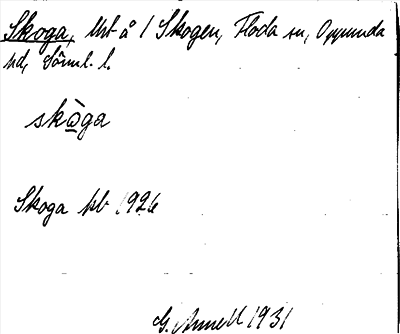 Skoga, tht å 1 Skogen, Floda sn, Oppunda
hd, Sörml. l.
skòga
Skoga jsb 1926
G. Annell 1931